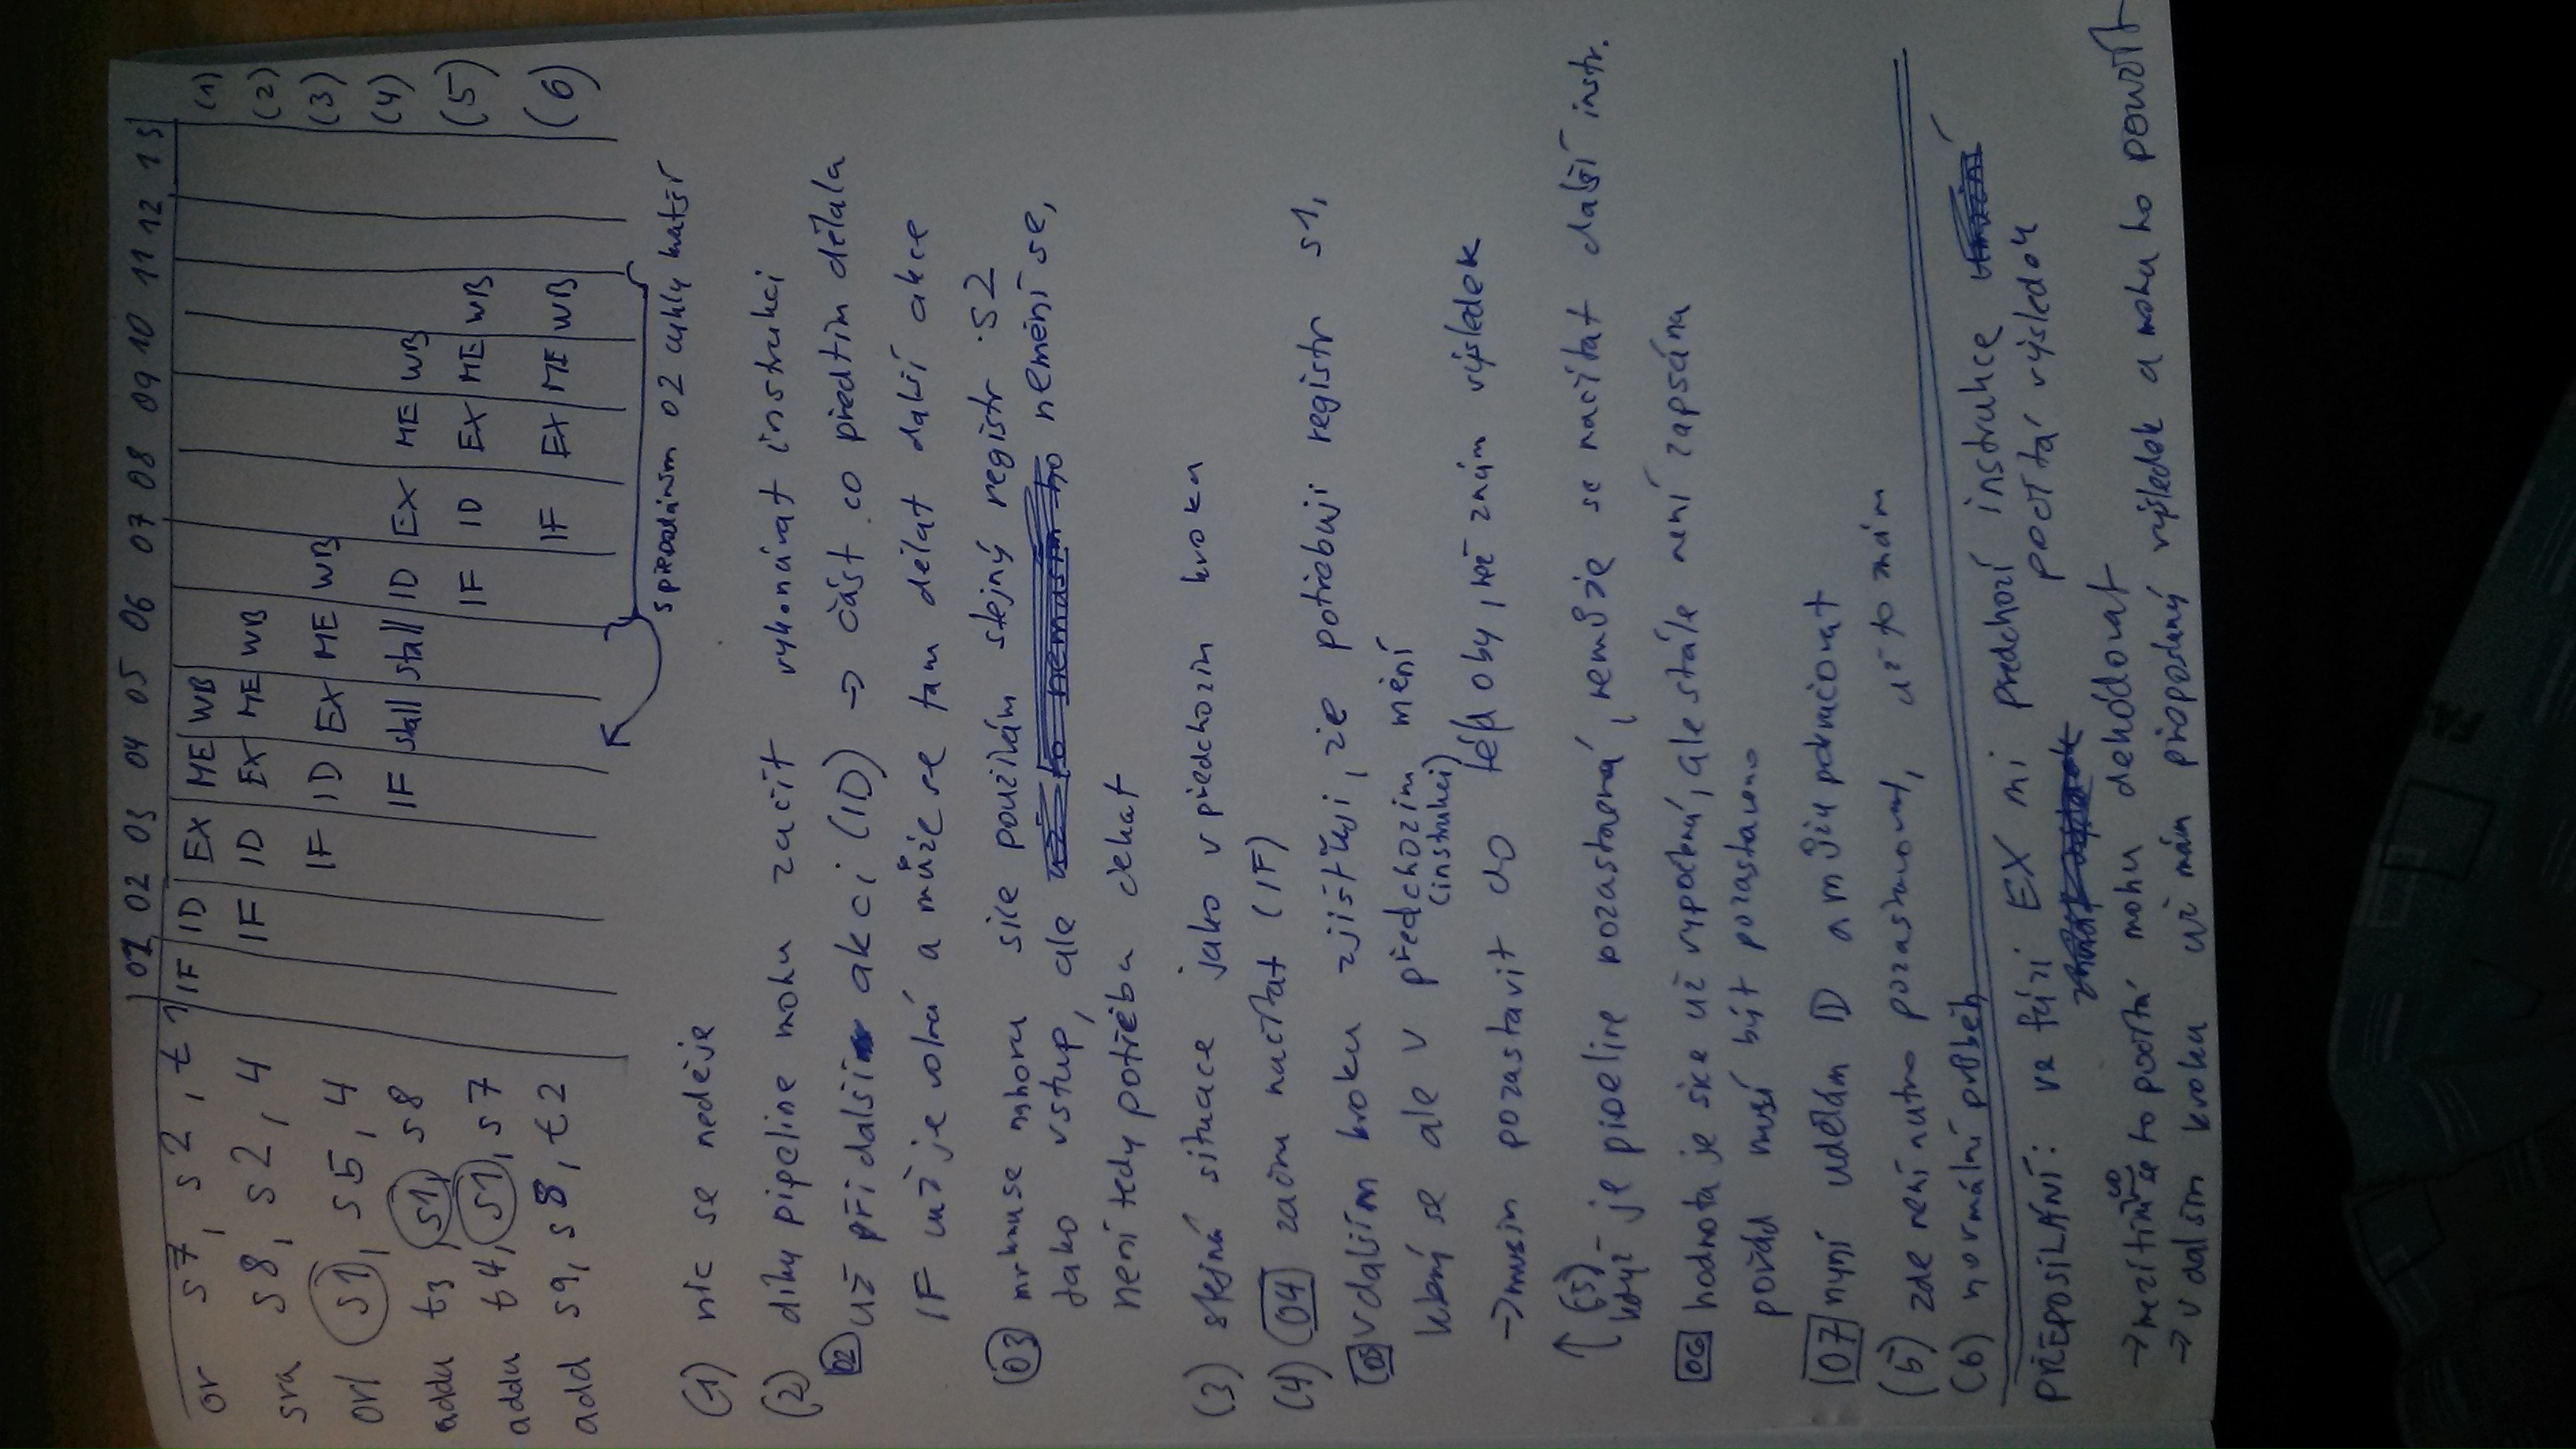 01 02 03 04 05 06 07 08 09 10 11 12 13
or s7, s2, t1 IF ID EX ME WB (1)
sra s8, s2, 4 IF ID EX ME WB (2)
ori s1, s5, 4 IF ID EX ME WB (3)
addu t3, s1, s8 IF stall stall ID EX ME WB (4)
addu t4, s1, s7 IF ID EX ME WB (5)
add s9, s8, t2 IF EX ME WB (6)
s přeposláním o 2 cykly kratší
(1) nic se neděje
(2) díky pipeline mohu začít vykonávat instrukci
02 už při dalším akci (ID) → část co předtím dělala
IF už je volná a může se tam dělat další akce
03 mrknu se nahoru sice používám stejný registr s2
jako vstup, ale nemění se,
není tedy potřeba čekat
(3) stejná situace jako v předchozím kroku
(4) 04 začnu načítat (IF)
05 v dalším kroku zjišťuji, že potřebuji registr s1,
který se ale v předchozím mění
(instrukci)
→ musím pozastavit do té doby, než znám výsledek
↑ (5) - když je pipeline pozastavená, nemůže se načítat další instr.
06 hodnota je sice už vypočtná, ale stále není zapsána
pořád musí být pozastaveno
07 nyní udělám ID a můžu pokračovat
(5) zde není nutno pozastavovat, už to znám
(6) normální průběh
PŘEPOSÍLÁNÍ: ve fázi EX mi předchozí instrukce
počítá výsledek
→ mezitím co se to počítá mohu dekódovat
→ v dalším kroku už mám přeposlaný výsledek a mohu ho použít